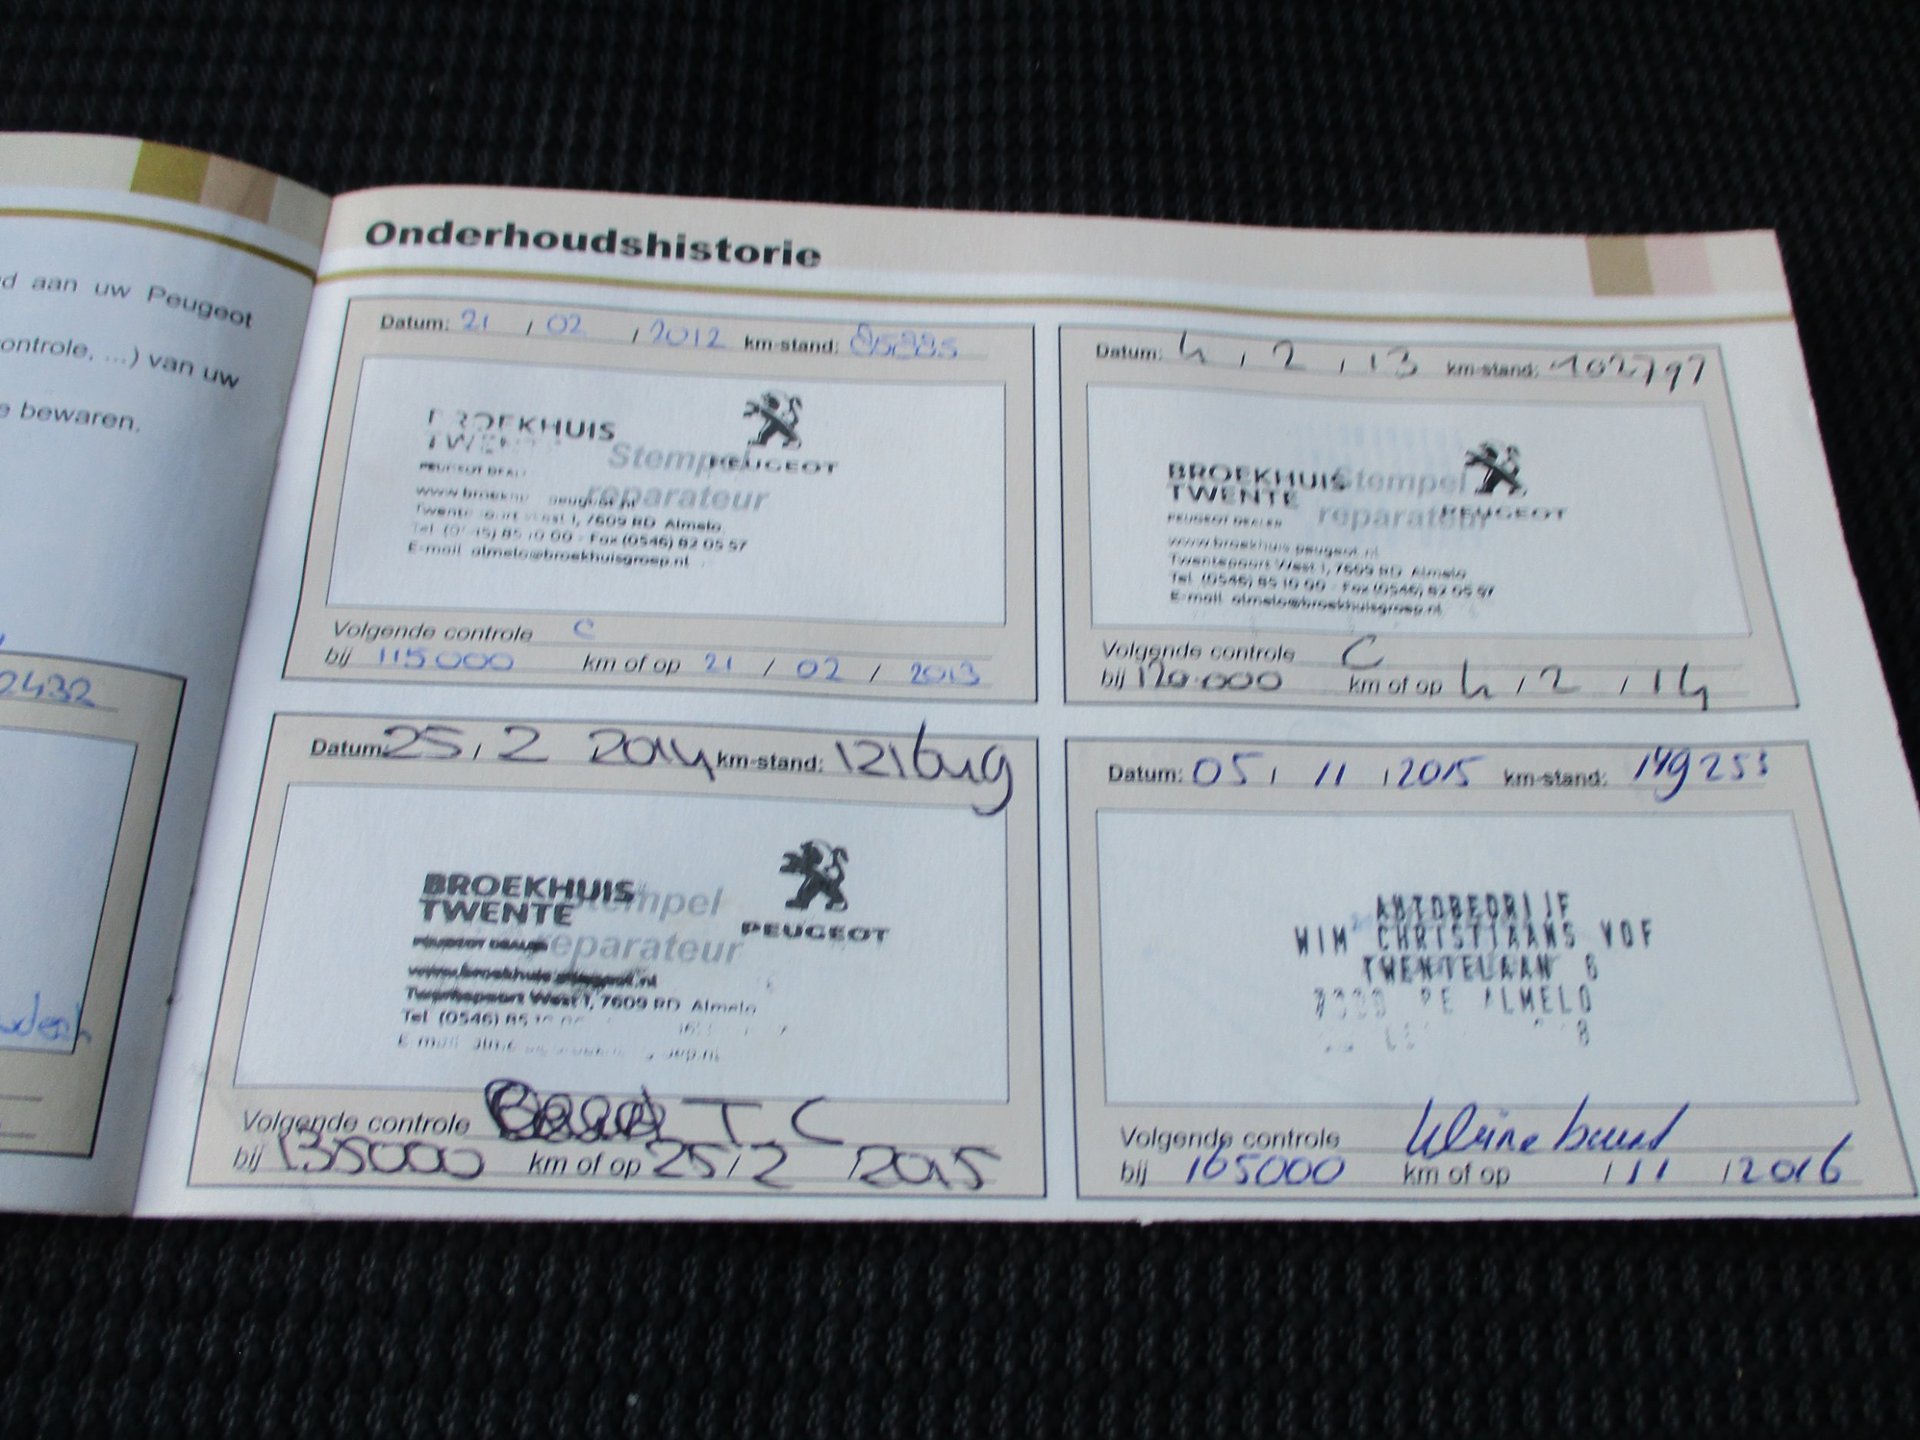 d aan uw Peugeot
ontrole, ...) van uw
e bewaren.
2432
Onderhoudshistorie
Datum: 21 / 02 / 2012 km-stand:
BROEKHUIS
TWENTE
PEUGEOT
Stempel
reparateur
Twentepoort West 1, 7609 RD Almelo
Tel. (0546) 85 10 00 - Fax (0546) 82 05 57
E-mail almelo@broekhuisgroep.nl
Volgende controle C
bij 115000 km of op 21 / 02 / 2013
Datum: 4 / 2 / 13 km-stand: 102797
BROEKHUIS
TWENTE
PEUGEOT DEALER
PEUGEOT
Stempel
reparateur
www.broekhuis-peugeot.nl
Twentepoort West 1, 7609 RD Almelo
Tel. (0546) 85 10 00 - Fax (0546) 82 05 57
E-mail almelo@broekhuisgroep.nl
Volgende controle C
bij 120.000 km of op 4 / 2 / 14
Datum: 25 / 2 2014 km-stand: 121649
BROEKHUIS
TWENTE
PEUGEOT DEALER
PEUGEOT
Stempel
reparateur
Twentepoort West 1, 7609 RD Almelo
Tel. (0546) 85 10
Volgende controle T C
bij 135000 km of op 25 / 2 / 2015
Datum: 05 / 11 / 2015 km-stand: 149253
AUTOBEDRIJF
WIM CHRISTIAANS VOF
TWENTELAAN 6
ALMELO
Volgende controle kleine beurt
bij 165000 km of op / 11 / 2016